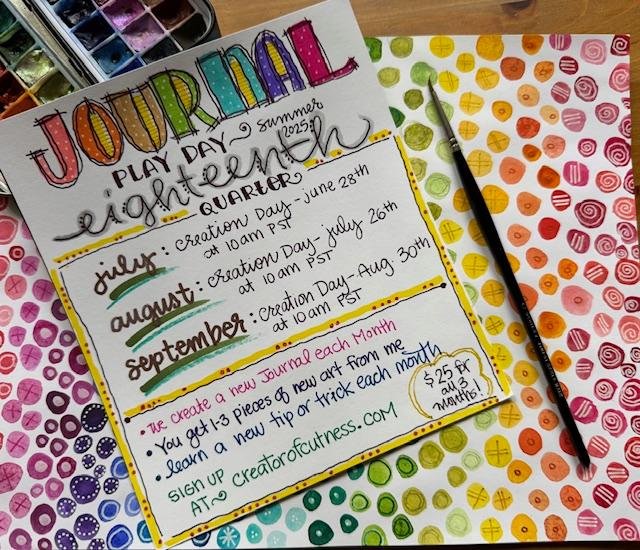 JOURNAL
PLAY DAY summer
2025:
eighteenth
QUARTER
july: creation Day - june 28th
at 10am PST
august: creation Day - july 26th
at 10am PST
september: creation Day - Aug. 30th
at 10am PST
• We create a new Journal each Month
• You get 1-3 pieces of new art from me
• learn a new tip or trick each month
$25 for
all 3
months!
SIGN UP
AT creatorofcutness.com